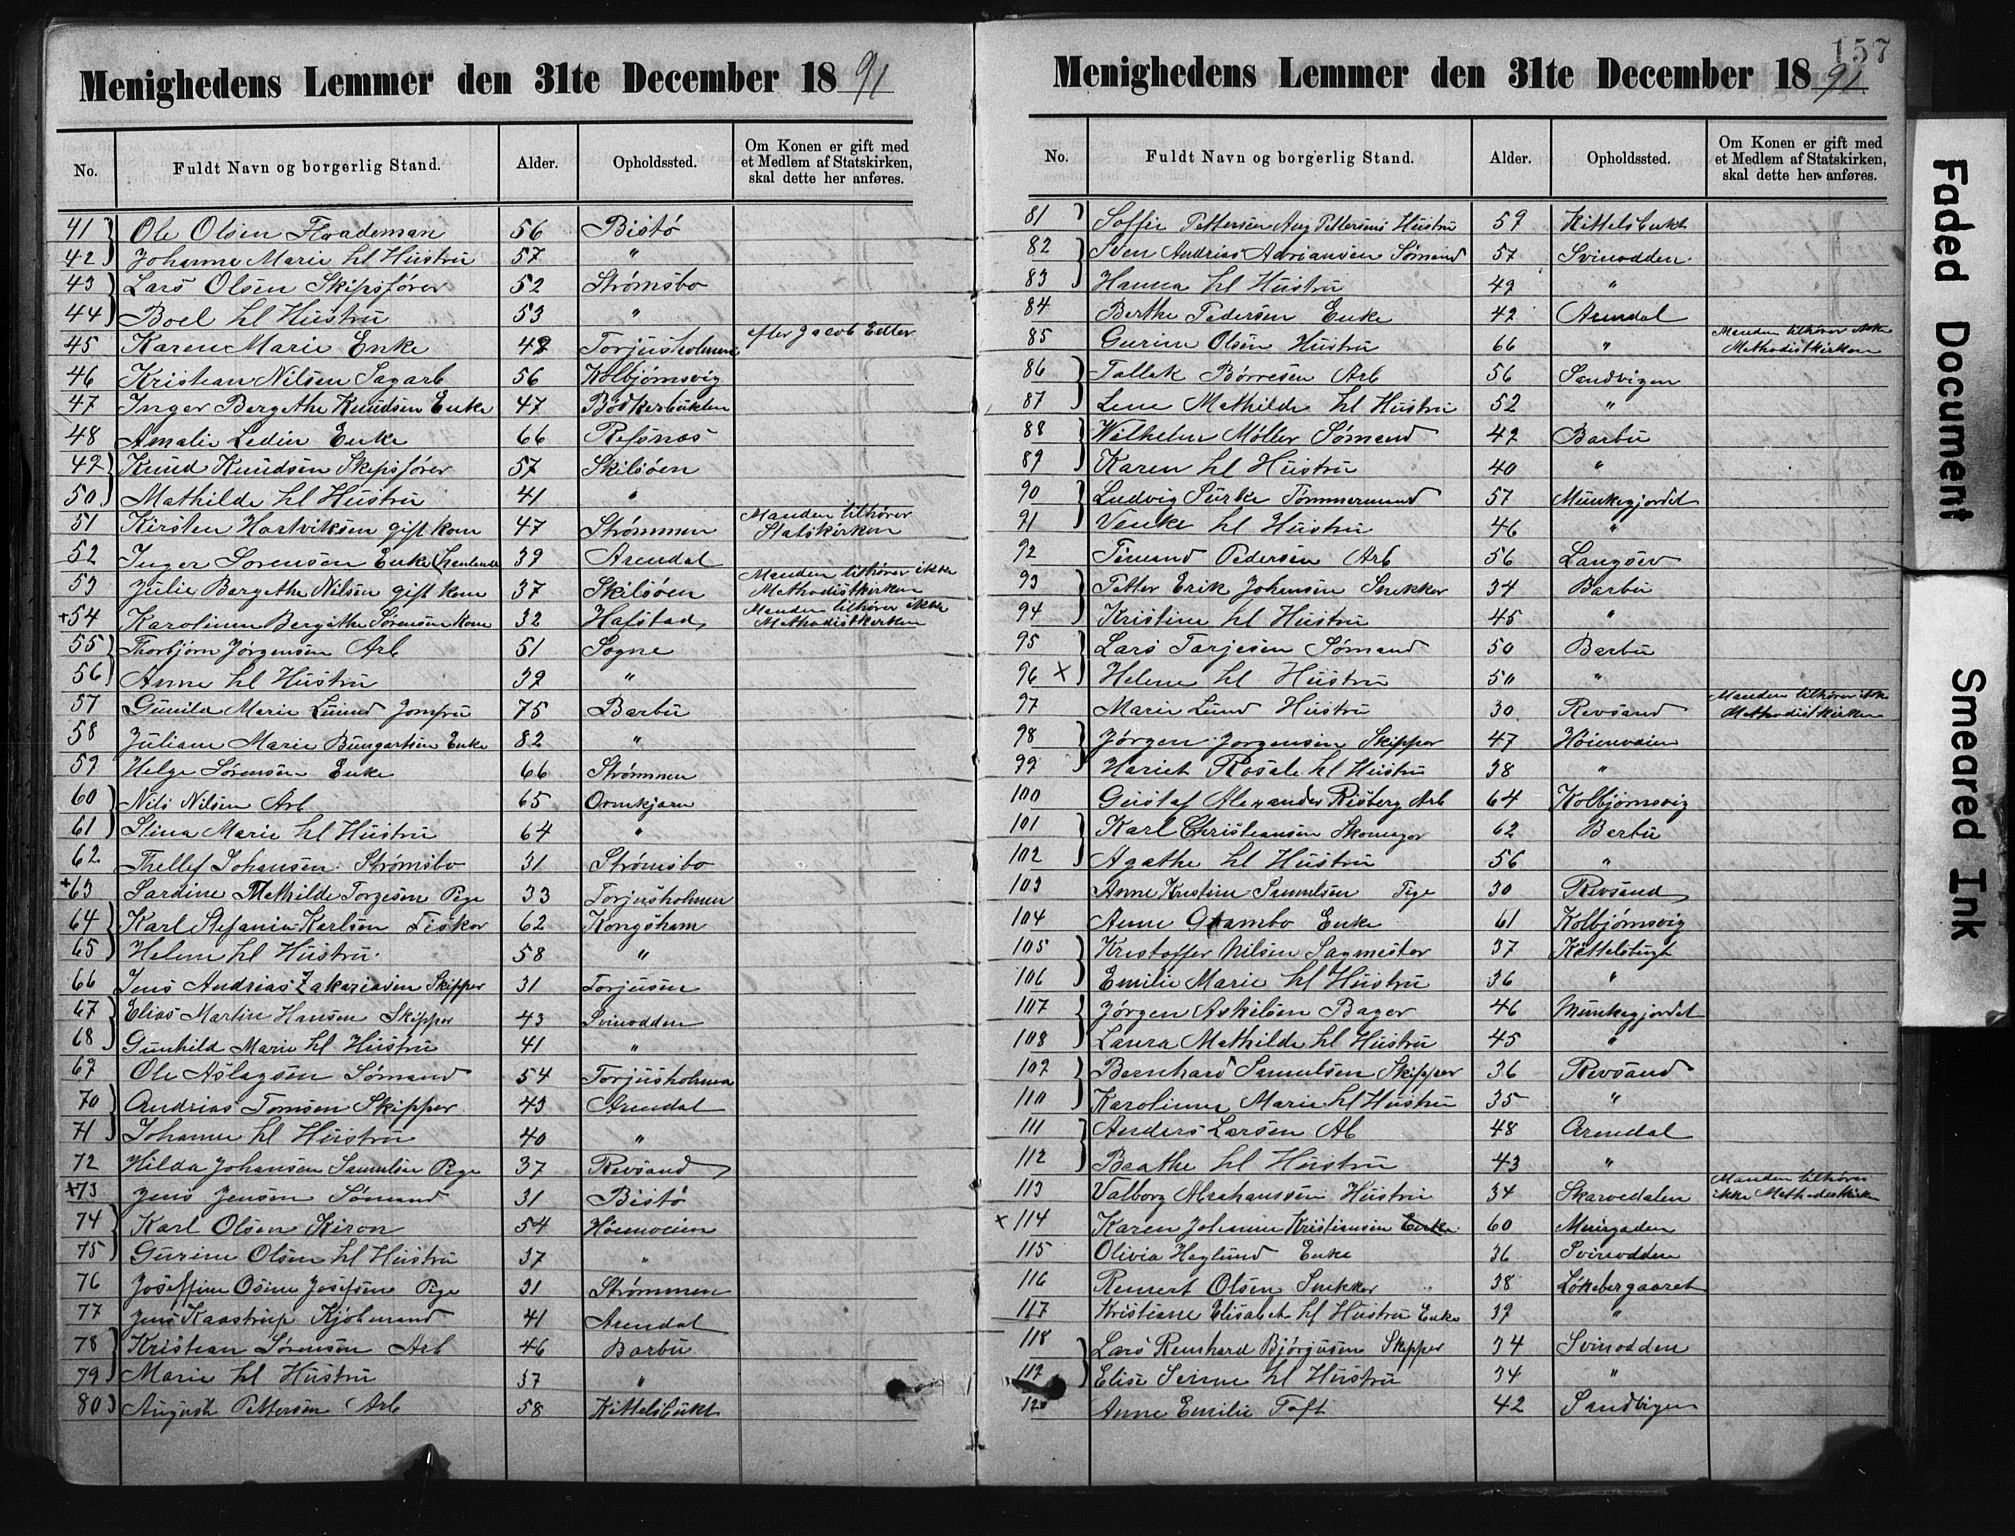 Menighedens Lemmer den 31te December 1891
No. Fuldt Navn og borgerlig Stand. Alder. Opholdssted. Om Konen er gift med et Medlem af Statskirken, skal dette her anføres.
41 Ole Olsen Flaademan 56 Bistö
42 Johanne Marie hl Hustru 57 "
43 Lars Olsen Skibsfører 52 Strømsbo
44 Boel hl Hustru 53 "
45 Karen Marie Enke 42 Torjusholmen efter Jacob Edler
46 Kristian Nilsen Sagarb 56 Kolbjørnsvig
47 Inger Bergethe Knudsen Enke 47 Bødkerbukten
48 Amalie Ledin Enke 66 Refsnæs
49 Knud Knudsen Skipsfører 57 Skilsöen
50 Mathilde hl Hustru 41 "
51 Kirsten Hartviksen gift kone 47 Strømmen Manden tilhører Statskirken
52 Inger Sørensen Enke 39 Arendal
53 Julie Bergethe Nilsen gift kone 37 Skilsöen Manden tilhører ikke Methodistkirken
+54 Karoline Bergithe Sørensen Kone 32 Hafstad Manden tilhører ikke Methodistkirken
55 Thorbjørn Jørgensen Arb 51 Sogne
56 Anne hl Hustru 39 "
57 Gunild Marie Lund Jomfru 75 Barbu
58 Juliane Marie Bungartsen Enke 82 "
59 Helge Sørensen Enke 66 Strømmen
60 Nils Nilsen Arb 65 Ormkjærn
61 Stina Marie hl Hustru 64 "
62 Thellef Johansen Strømsbo 31 Strømsbo
+63 Sardine Mathilde Torgesen Pige 33 Torjusholmen
64 Karl Stefanin Karlsen Fisker 62 Kongsham
65 Helene hl Hustru 58 "
66 Jens Andrias Zakariasen Skipper 31 Torjusen
67 Elias Martin Hansen Skipper 43 Svinodden
68 Gunhild Marie hl Hustru 41 "
69 Ole Aslagsen Sømand 54 Torjusholmen
70 Andrias Tomsen Skipper 43 Arendal
71 Johanne hl Hustru 40 "
72 Hilda Johansen Samulsen Pige 37 Revsand
+73 Jens Jensen Sømand 31 Bistö
74 Karl Olsen Kiron 54 Höieveien
75 Gurine Olsen hl Hustru 37 "
76 Joseffine Osine Josefsen Pige 31 Strømmen
77 Jens Kaastrup Kjøbmand 41 Arendal
78 Kristian Sørensen Arb 46 Barbu
79 Marie hl Hustru 57 "
80 August Pettersen Arb 58 Kittelsbukt
157
Menighedens Lemmer den 31te December 1891
No. Fuldt Navn og borgerlig Stand. Alder. Opholdssted. Om Konen er gift med et Medlem af Statskirken, skal dette her anføres.
81 Soffie Pettersen Aug Pettersens Hustru 59 Kittelsbukt
82 Sven Andrias Adriansen Sømand 57 Svinodden
83 Hanna hl Hustru 49 "
84 Berthe Pedersen Enke 42 Arendal
85 Gurine Olsen Hustru 66 " Manden tilhører ikke Methodistkirken
86 Tallak Børresen Arb 56 Sandvigen
87 Lene Mathilde hl Hustru 52 "
88 Wilhelm Møller Sømand 42 Barbu
89 Karen hl Hustru 40 "
90 Ludvig Surke Tømmermand 57 Munkegjordet
91 Venke hl Hustru 46 "
92 Timand Pedersen Arb 56 Langsev
93 Petter Erik Johansen Snekker 34 Barbu
94 Kristine hl Hustru 45 "
95 Lars Tarjesen Sømand 50 Barbu
96 x Helene hl Hustru 50 "
97 Marie Lund Hustru 30 Revsand Manden tilhører ikke Methodistkirken
98 Jørgen Jørgensen Skipper 47 Höieveien
99 Hariet Rosale hl Hustru 38 "
100 Gustaf Alexander Risberg Arb 64 Kolbjørnsvig
101 Karl Christiansen Skomager 62 Barbu
102 Agathe hl Hustru 56 "
103 Anne Kristine Samulsen Pige 30 Revsand
104 Anne Grambo Enke 61 Kolbjørnsvig
105 Kristoffer Nilsen Sagmester 37 Kittelsbugt
106 Emilie Marie hl Hustru 36 "
107 Jørgen Askilsen Bager 46 Munkegjordet
108 Laura Mathilde hl Hustru 45 "
109 Bernhard Samulsen Skipper 36 Revsand
110 Karoline Marie hl Hustru 35 "
111 Anders Larsen Ab 48 Arendal
112 Beathe hl Hustru 43 "
113 Valborg Abrahamsen Hustru 34 Skarvedalen Manden tilhører ikke Methodistkirken
x 114 Karen Johanne Kristiansen Enke 60 Muregaden
115 Olivia Heglund Enke 36 Svinodden
116 Remert Olsen Snekker 38 Løkebergaaret
117 Kristiane Elisabet hl Hustru Enke 39 "
118 Lars Renhard Bjørgusen Skipper 34 Svinodden
119 Elise Serine hl Hustru 34 "
120 Anne Emilie Toft 42 Sandvigen
Faded Document
Smeared Ink